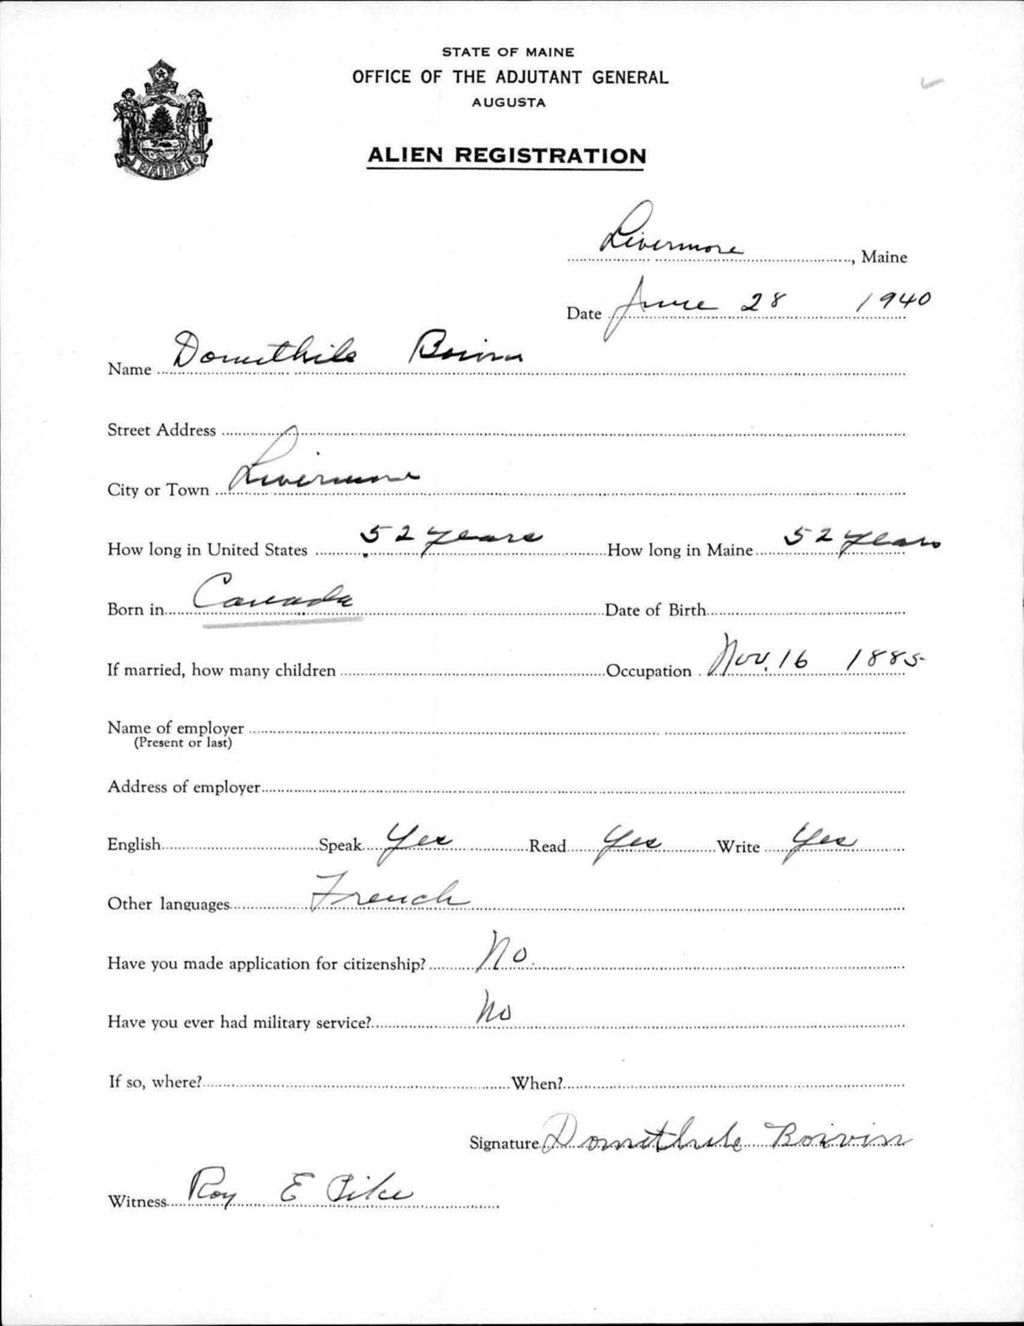 STATE OF MAINE
OFFICE OF THE ADJUTANT GENERAL
AUGUSTA
ALIEN REGISTRATION
MAINE
Livermore, Maine
Date June 28 1940
Name Domithile Boivin
Street Address
City or Town Livermore
How long in United States 52 years How long in Maine 52 years
Born in Canada Date of Birth
If married, how many children Occupation Nov. 16 1885
Name of employer
(Present or last)
Address of employer
English Speak Yes Read Yes Write Yes
Other languages French
Have you made application for citizenship? No.
Have you ever had military service? No
If so, where? When?
Signature Domithile Boivin
Witness Roy E Pike